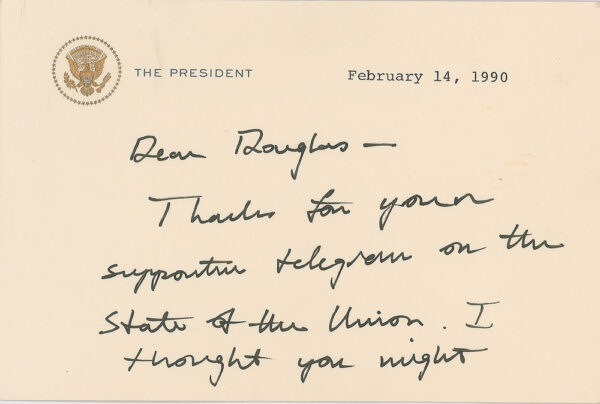 THE PRESIDENT
February 14, 1990
Dear Douglas —
Thanks for your
supportive telegram on the
State of the Union. I
thought you might